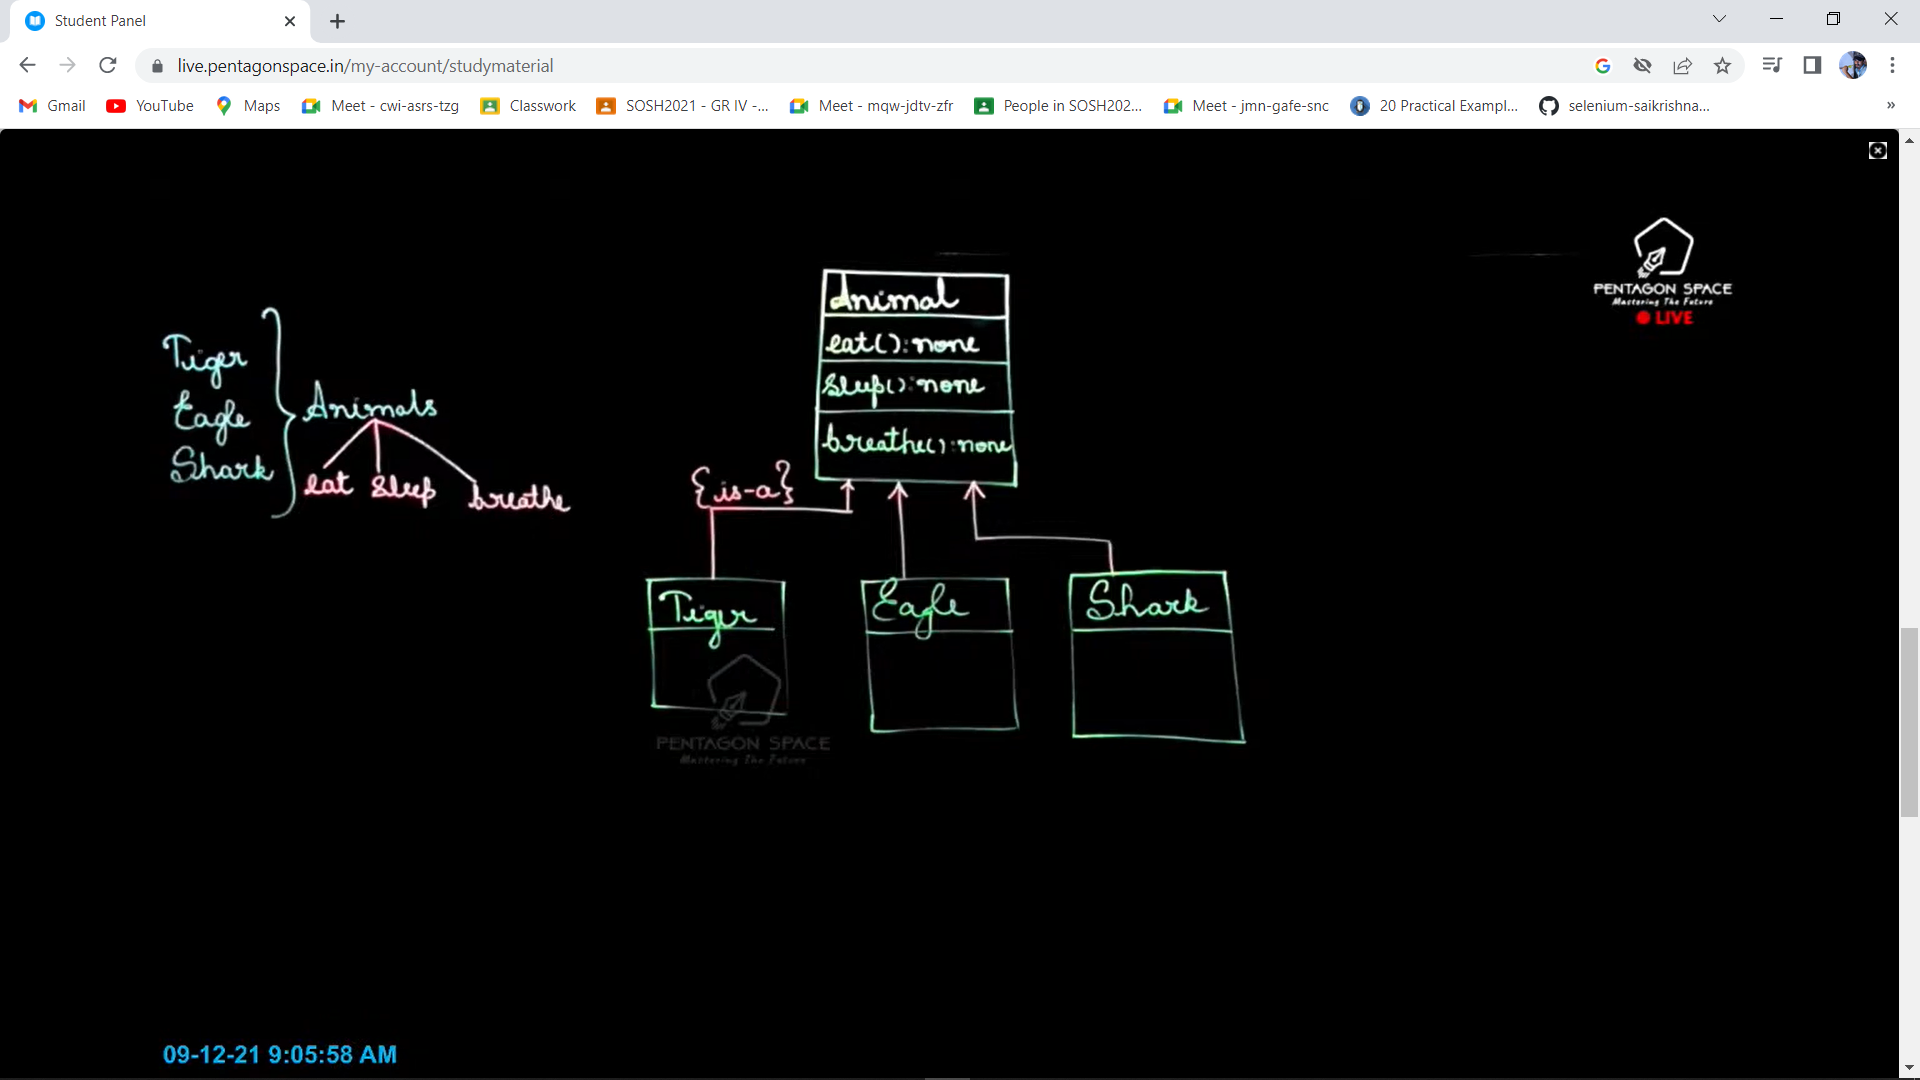 Student Panel
live.pentagonspace.in/my-account/studymaterial
Gmail YouTube Maps Meet - cwi-asrs-tzg Classwork SOSH2021 - GR IV -... Meet - mqw-jdtv-zfr People in SOSH202... Meet - jmn-gafe-snc 20 Practical Exampl... selenium-saikrishna... »
PENTAGON SPACE
Mastering The Future
LIVE
Tiger
Eagle
Shark
Animals
eat sleep breathe
Animal
eat():none
sleep():none
breathe():none
{is-a}
Tiger Eagle Shark
PENTAGON SPACE
Mastering The Future
09-12-21 9:05:58 AM